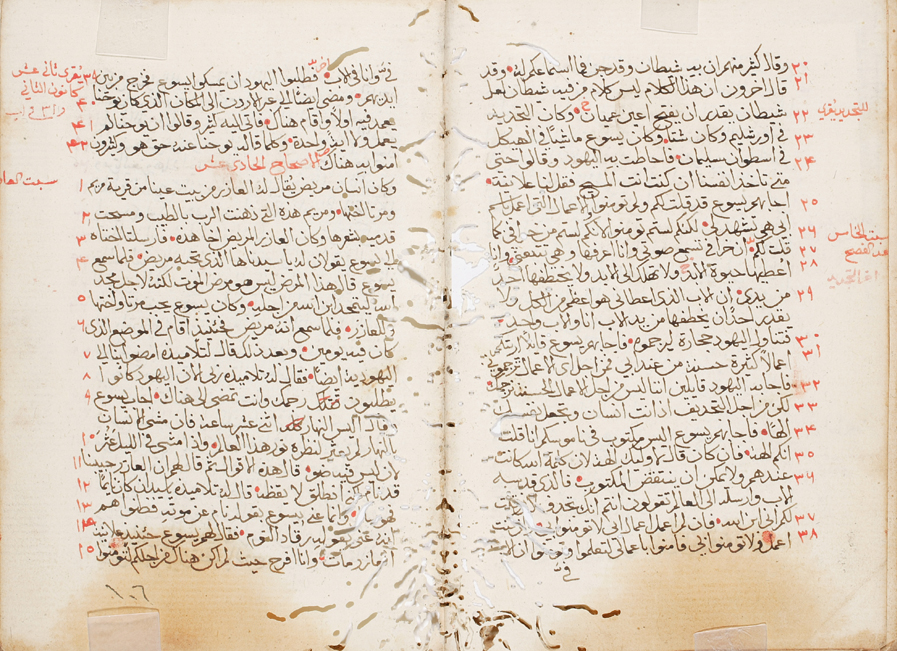 ٢٠ وقال كثير منهم ان به شيطان وقد جن فما استماعكم له وقد
٢١ قال اخرون ان هذا الكلام ليس كلام من فيه شيطان لعل
٢٢ شيطان يقدر ان يفتح اعين عميان وكان التجديد
للتجديد يقرى
٢٣ في اورشليم وكان شتا وكان يسوع ماشيا في الهيكل
٢٤ في اسطوان سليمان فاحاطت به اليهود وقالوا حتى
متى تاخذ انفسنا ان كنت انت المسيح فقل لنا علانية
٢٥ اجابهم يسوع قد قلت لكم ولم تومنوا الاعمال التي اعمل باسم
٢٦ ابي هي تشهد لي لكنكم لستم تومنوا لانكم لستم من خرافي كما
٢٧ قلت لكم ان خرافي تسمع صوتي وانا اعرفها وهي تتبعني وانا
٢٨ اعطيها حيوة الابد ولا تهلك الى الابد ولا يخطفها احد
٢٩ من يدي ان الاب الذي اعطاني هو اعظم من الكل ولا
يقدر احد ان يخطفها من يد الاب انا والاب واحد
٣٠ فتناول اليهود حجارة ليرجموه فاجابهم يسوع قايلا اريتكم
٣١ اعمالا كثيرة حسنة من عند ابي فمن اجل اي الاعمال ترجموني
٣٢ فاجابه اليهود قايلين اننا ليس من اجل الاعمال الحسنة نرجمك
٣٣ لكن من اجل التجديف اذ انت انسان وتجعل نفسك
الها فاجابهم يسوع اليس مكتوب في ناموسكم انا قلت
٣٤
٣٥ انكم الهة فان كان قال لاوليك الهة لان كلمة الله كانت
٣٦ عندهم ولا يمكن ان ينتقض المكتوب فالذي قدسه
الاب وارسله الى العالم تقولون انتم انك تجدف
٣٧ لكم اني ابن الله فان لم اعمل اعمال ابي لا تومنوا بي
٣٨ اعمل ولا تومنوا بي فامنوا باعمالي لتعلموا وتومنوا ان الاب
في
في وانا في الاب فطلبوا اليهود ان يمسكوا يسوع فخرج من بين
٣٩
ايديهم ومضى ايضا الى عبر الاردن الى المكان الذي كان يوحنا
٤٠
يعمد فيه اولا واقام هناك فاتى اليه كثير وقالوا ان يوحنا لم
٤١
يعمل ولا اية واحدة وكلما قاله يوحنا عنه حق هو وكثيرون
٤٢
امنوا به هناك الاصحاح الحادي عشر
وكان انسان مريض يقال له العازر من بيت عنيا من قرية مريم ١
ومرتا اختها ومريم هذه التي دهنت الرب بالطيب ومسحت ٢
قدميه بشعرها وكان العازر المريض اخا هذه فارسلتا اختاه ٣
الى يسوع يقولان له يا سيد ها الذي تحبه مريض فلما سمع ٤
يسوع قال هذا المرض ليس هو مرض الموت لكنه لاجل مجد
الله ليتمجد ابن الله من اجله وكان يسوع يحب مرتا واختها ٥
والعازر فلما سمع انه مريض حينئذ اقام في الموضع الذي ٦
كان فيه يومين وبعد ذلك قال لتلاميذه امضوا بنا الى ٧
اليهودية ايضا فقال له تلاميذه ربي الان اليهود كانوا ٨
يطلبون رجمك وانت تمضي الى هناك اجاب يسوع ٩
وقال اليس النهار اثنى عشر ساعة فان مشى الانسان
في النهار لم يعثر لنظره نور هذا العالم واذا مشى في الليل عثر ١٠
لان ليس فيه ضو قال هذه الاقوال ثم قال لهم ان العازر حبيبنا ١١
قد نام لكن انا انطلق لايقظه قال له تلاميذه يا سيد ان كان نايما ١٢
فهو يبرا وانما عنى يسوع بقوله نام عن موته فظنوا هم ١٣
انه عنى رقاد النوم فقال لهم يسوع حينئذ علانية ١٤
العازر مات وانا افرح حيث لم اكن هناك من اجلكم لتومنوا ١٥
١٠٦
يقرى ثاني عشر
كانون الثاني
سبت الخامس
عند الفصح